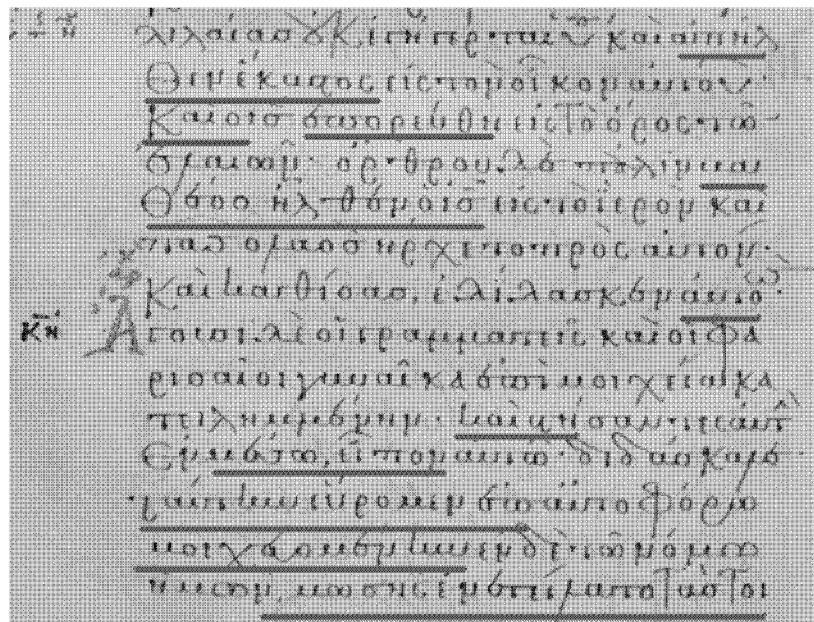 λιλαίας οὐκ ἐγήγερται· καὶ ἀπῆλ
θεν ἕκαστος εἰς τὸν οἶκον αὐτοῦ·
Καὶ ὁ ις ἐπορεύθη εἰς τὸ ὄρος τῶ
ἐλαιῶν· ὄρθρου δὲ πάλιν βα
θέος ἦλθεν ὁ ις εἰς τὸ ἱερὸν καὶ
πᾶς ὁ λαὸς ἤρχετο πρὸς αὐτόν·
Καὶ καθίσας, ἐδίδασκεν αὐτούς·
κη Ἄγουσι δὲ οἱ γραμματεῖς καὶ οἱ φα
ρισαῖοι γυναῖκα ἐπὶ μοιχεία κα
τειλημμένην· καὶ στήσαντες αὐτὴν
ἐν μέσω, εἶπον αὐτῶ· διδάσκαλε·
ταύτην εὕρομεν ἐπαυτοφόρω
μοιχευομένην ἐν δὲ τῶ νόμω
ἡμῶν, μωσῆς ἐνετείλατο τὰς τοι